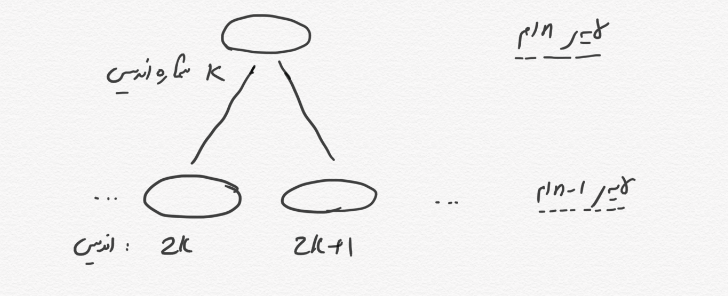 لایه n ام
شماره اندیس k
...
...
لایه n-1 ام
اندیس: 2k 2k+1